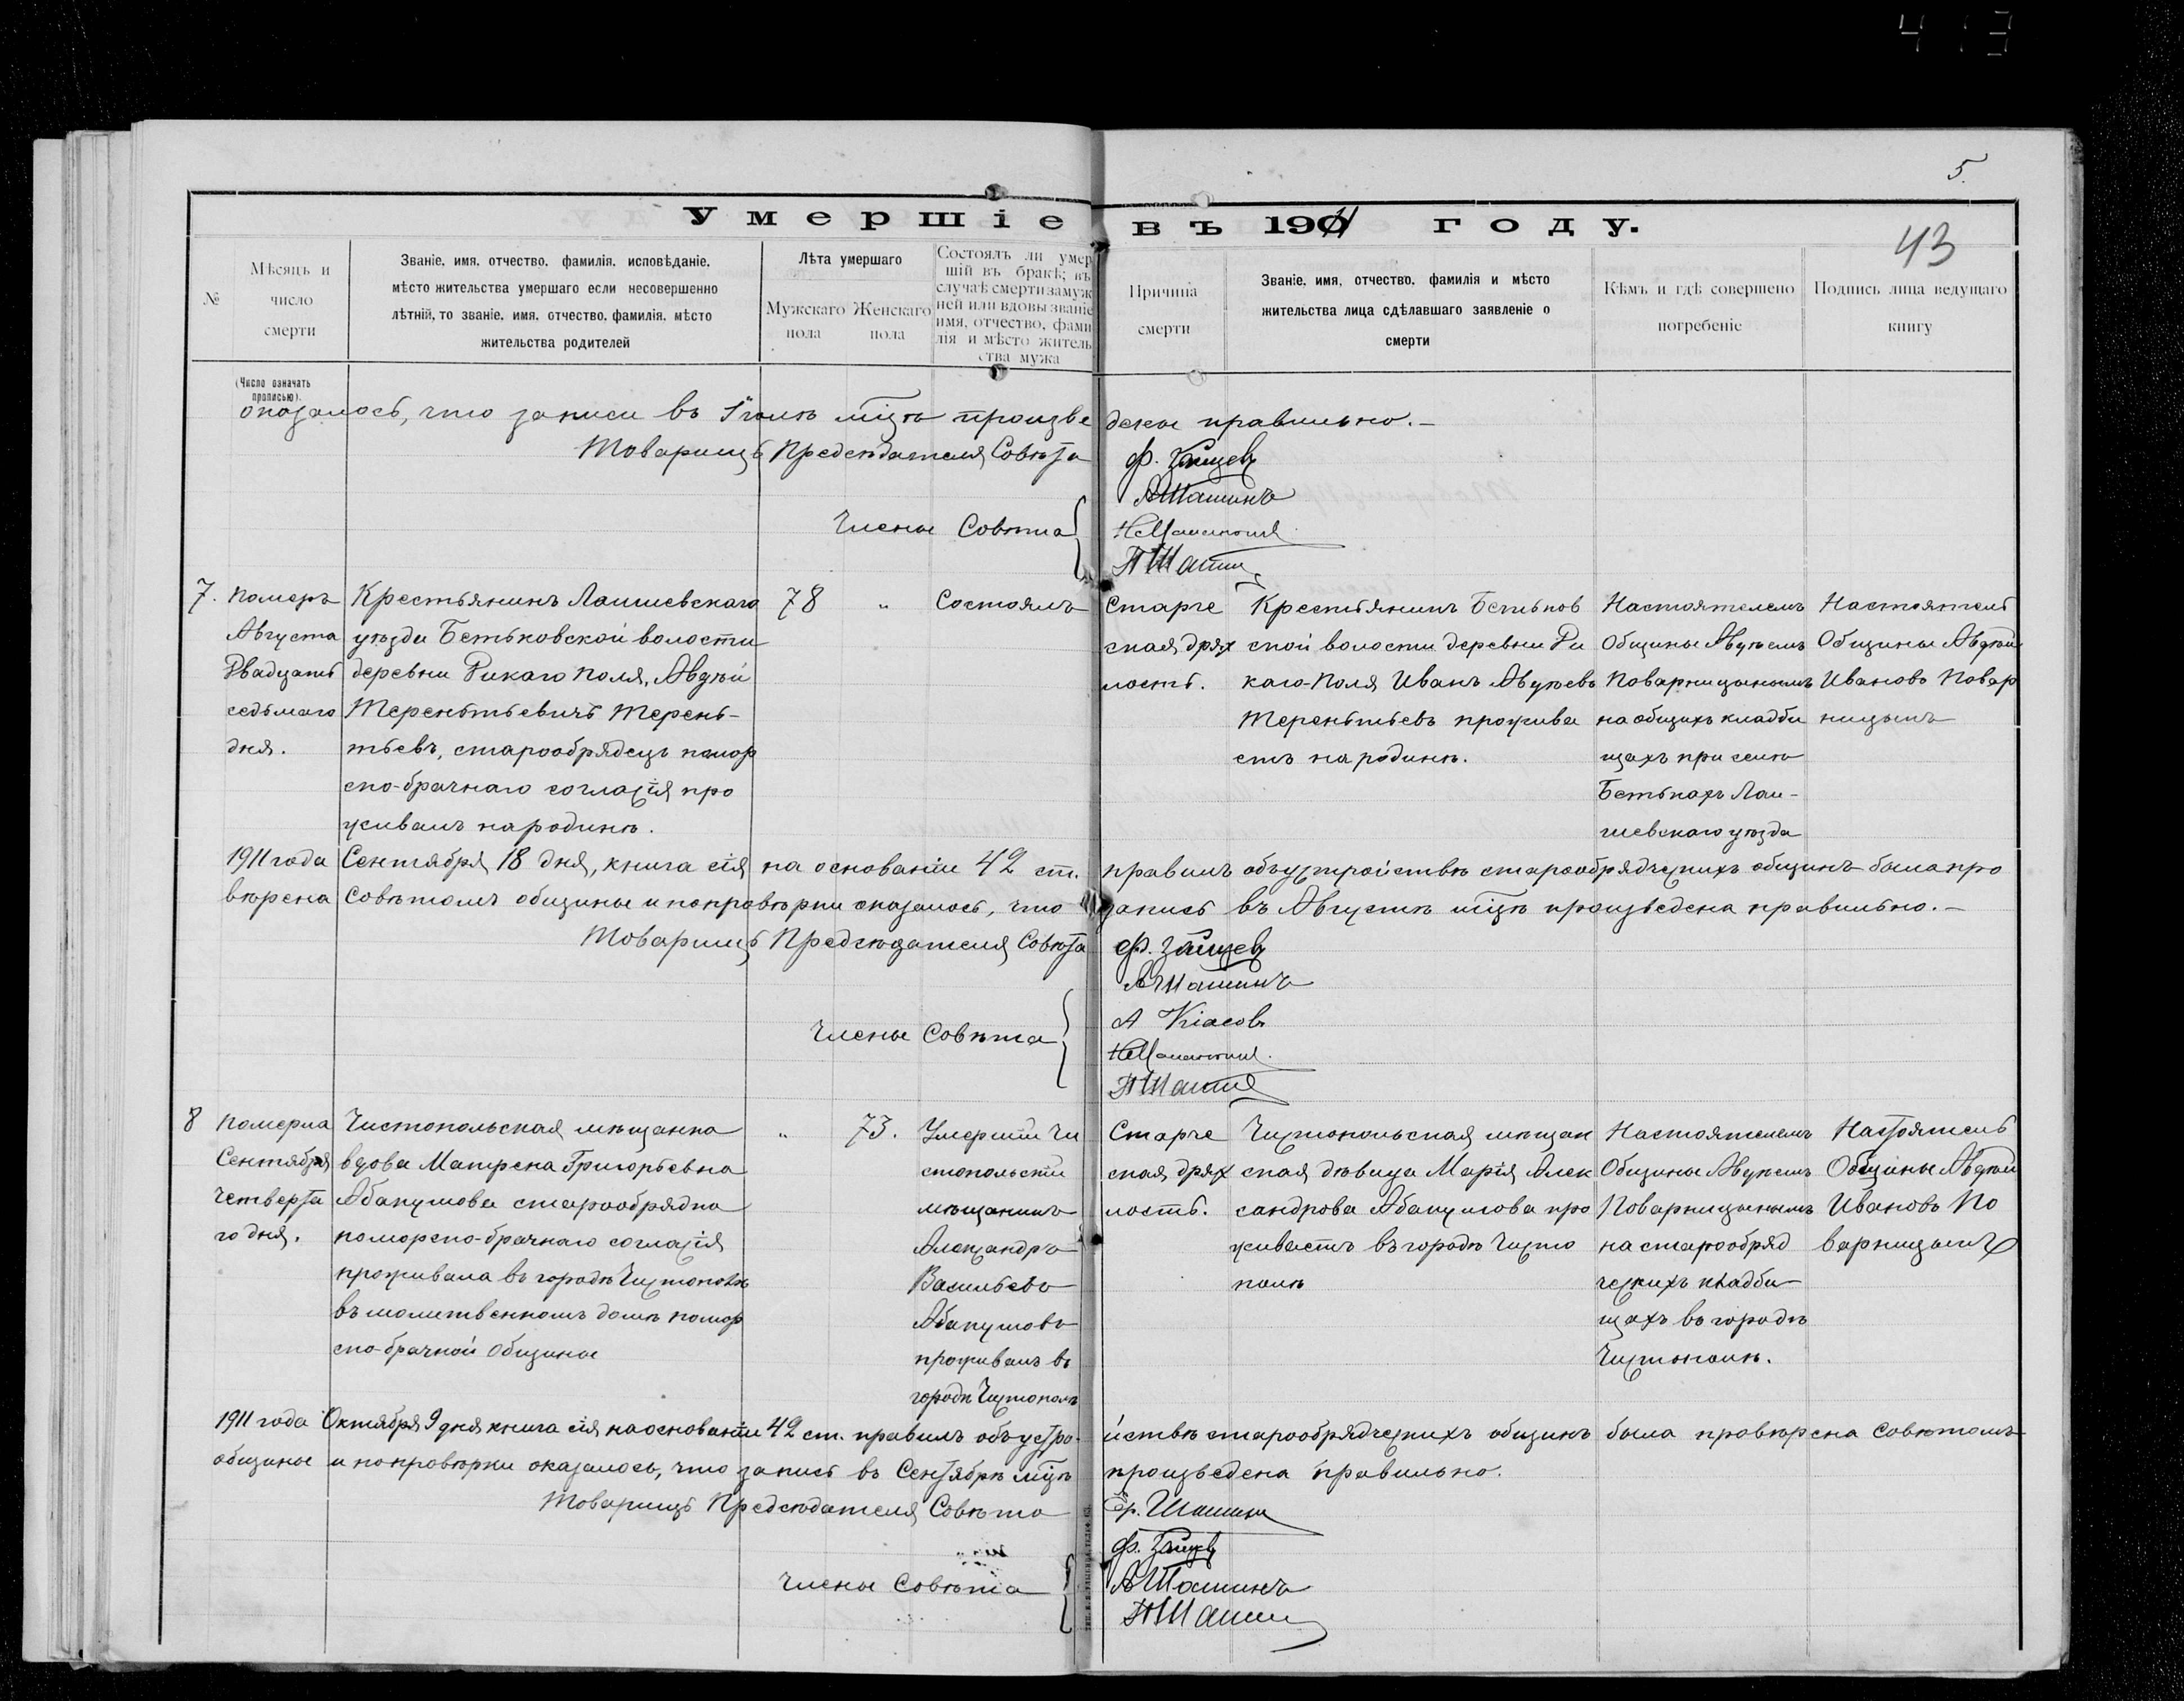 5.
Умершіе въ 1911 году.
43
№
Мѣсяцъ и число смерти
Званіе, имя, отчество, фамилія, исповѣданіе,
мѣсто жительства умершаго если несовершенно
лѣтній, то званіе, имя, отчество, фамилія, мѣсто
жительства родителей
Лѣта умершаго
Мужскаго пола
Женскаго пола
Состоялъ ли умер
шій въ бракѣ; въ
случаѣ смерти замуж
ней или вдовы званіе
имя, отчество, фами
лія и мѣсто житель
ства мужа
Причина
смерти
Званіе, имя, отчество, фамилія и мѣсто
жительства лица сдѣлавшаго заявленіе о
смерти
Кѣмъ и гдѣ совершено
погребеніе
Подпись лица ведущаго
книгу
(Число означать
прописью).
оказалось, что записи въ Іюлѣ мѣс̃цѣ произве дены правильно.—
Товарищъ Предсѣдателя Совѣта Ф. Зайцевъ
А Шашинъ
Члены Совѣта
П Шашин
7.
Померъ
Августа
Двадцать
седьмаго
дня.
Крестьянинъ Лаишевскаго
уѣзда Бетьковской волости
деревни Дикаго Поля, Авдѣй
Терентьевичъ Терень-
тьевъ, старообрядецъ помор
ско-брачнаго согласія про
живалъ на родинѣ.
78 „
Состоялъ
Старче
ская дрях
лость.
Крестьянинъ Бетьков
ской волости деревни Ди
каго-Поля Иванъ Авдѣевъ
Терентьевъ прожива
етъ на родинѣ.
Настоятелемъ
Общины Авдѣемъ
Поварницынымъ
на общихъ кладби
щахъ при селѣ
Бетькахъ Лаи-
шевскаго уѣзда
Настоятель
Общины Авдѣй
Ивановъ Повар
ницынъ
1911 года Сентября 18 дня, книга сія на основаніи 42 ст. правилъ объ устройствѣ старообрядческихъ общинъ была про
вѣрена Совѣтомъ общины и по провѣрки оказалось, что запись въ Августѣ мѣс̃цѣ произведена правильно.—
Товарищъ Предсѣдателя Совѣта Ф. Зайцевъ
А Шашинъ
А Кіасовъ
Члены Совѣта
П Шашин
8
Померла
Сентября
Четверта
го дня.
Чистопольская мѣщанка
вдова Матрена Григорьевна
Абакумова старообрядка
поморско-брачнаго согласія
проживала въ городѣ Чистополѣ
въ молитвенномъ домѣ помор
ско-брачной общины
„ 73.
Умершій Чи
стопольскій
мѣщанинъ
Александръ
Васильевъ
Абакумовъ
проживалъ въ
городѣ Чистополѣ
Старче
ская дрях
лость.
Чистопольская мѣщан
ская дѣвица Марія Алек
сандрова Абакумова про
живаетъ въ городѣ Чисто
полѣ
Настоятелемъ
Общины Авдѣемъ
Поварницынымъ
на старообряд
ческихъ кладби
щахъ въ городѣ
Чистополѣ.
Настоятель
Общины Авдѣй
Ивановъ По
варницынъ
1911 года Октября 9 дня книга сія на основаніи 42 ст. правилъ объ устро йствѣ старообрядческихъ общинъ была провѣрена Совѣтомъ
общины и по провѣрки оказалось, что запись въ Сентябрѣ мѣс̃цѣ произведена правильно.
Товарищъ Предсѣдателя Совѣта Гр. Шашин
Ф. Зайцевъ
Члены Совѣта А Шашинъ
П Шашин